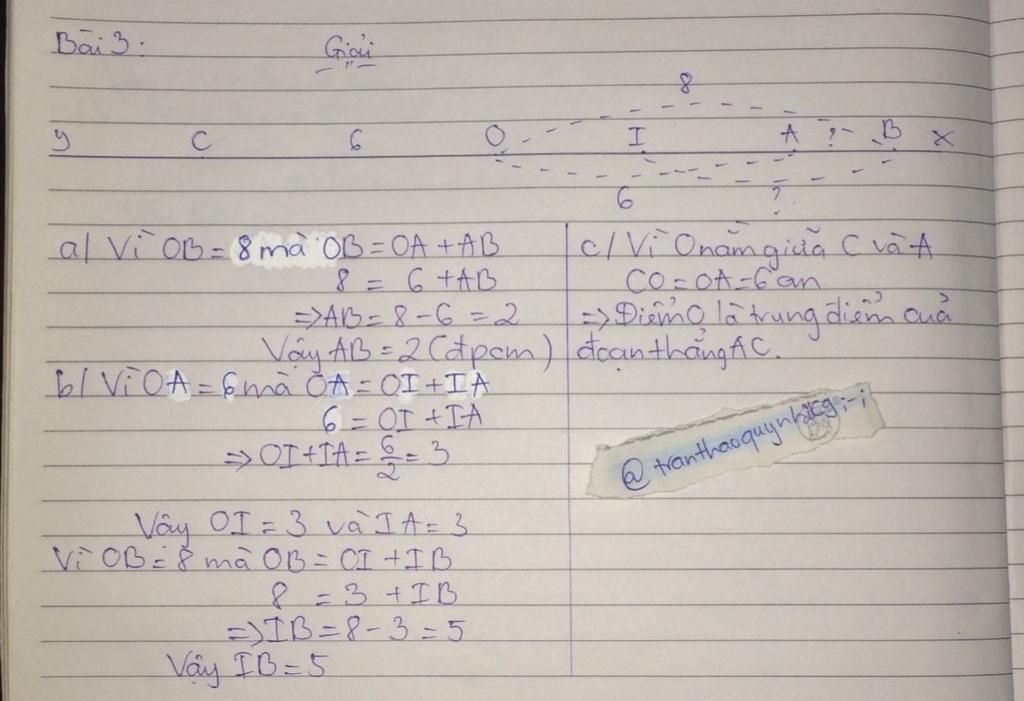 Bài 3:
Giải
8
y C 6 O I A ? B x
6 ?
a/ Vì OB = 8 mà OB = OA + AB
8 = 6 + AB
=> AB = 8 - 6 = 2
Vậy AB = 2 (đpcm)
b/ Vì OA = 6 mà OA = OI + IA
6 = OI + IA
=> OI + IA = 6/2 = 3
Vậy OI = 3 và IA = 3
Vì OB = 8 mà OB = OI + IB
8 = 3 + IB
=> IB = 8 - 3 = 5
Vậy IB = 5
c/ Vì O nằm giữa C và A
CO = OA = 6 cm
=> Điểm O là trung điểm của
đoạn thẳng AC.